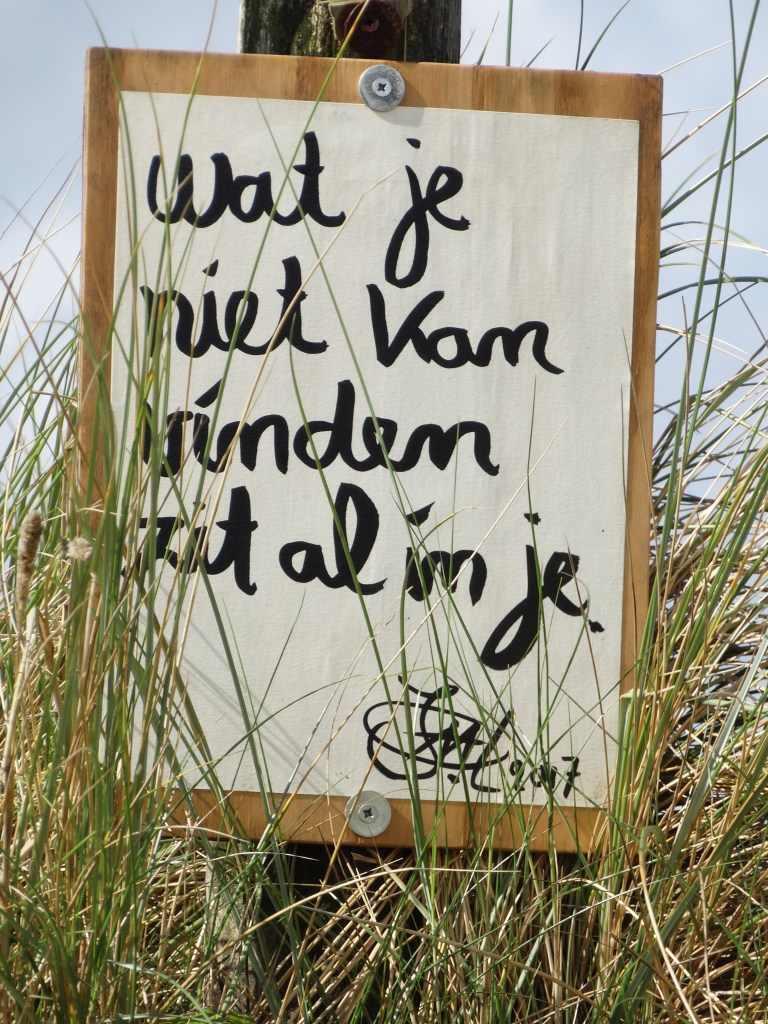 wat je
niet kan
vinden
zit al in je.
2017